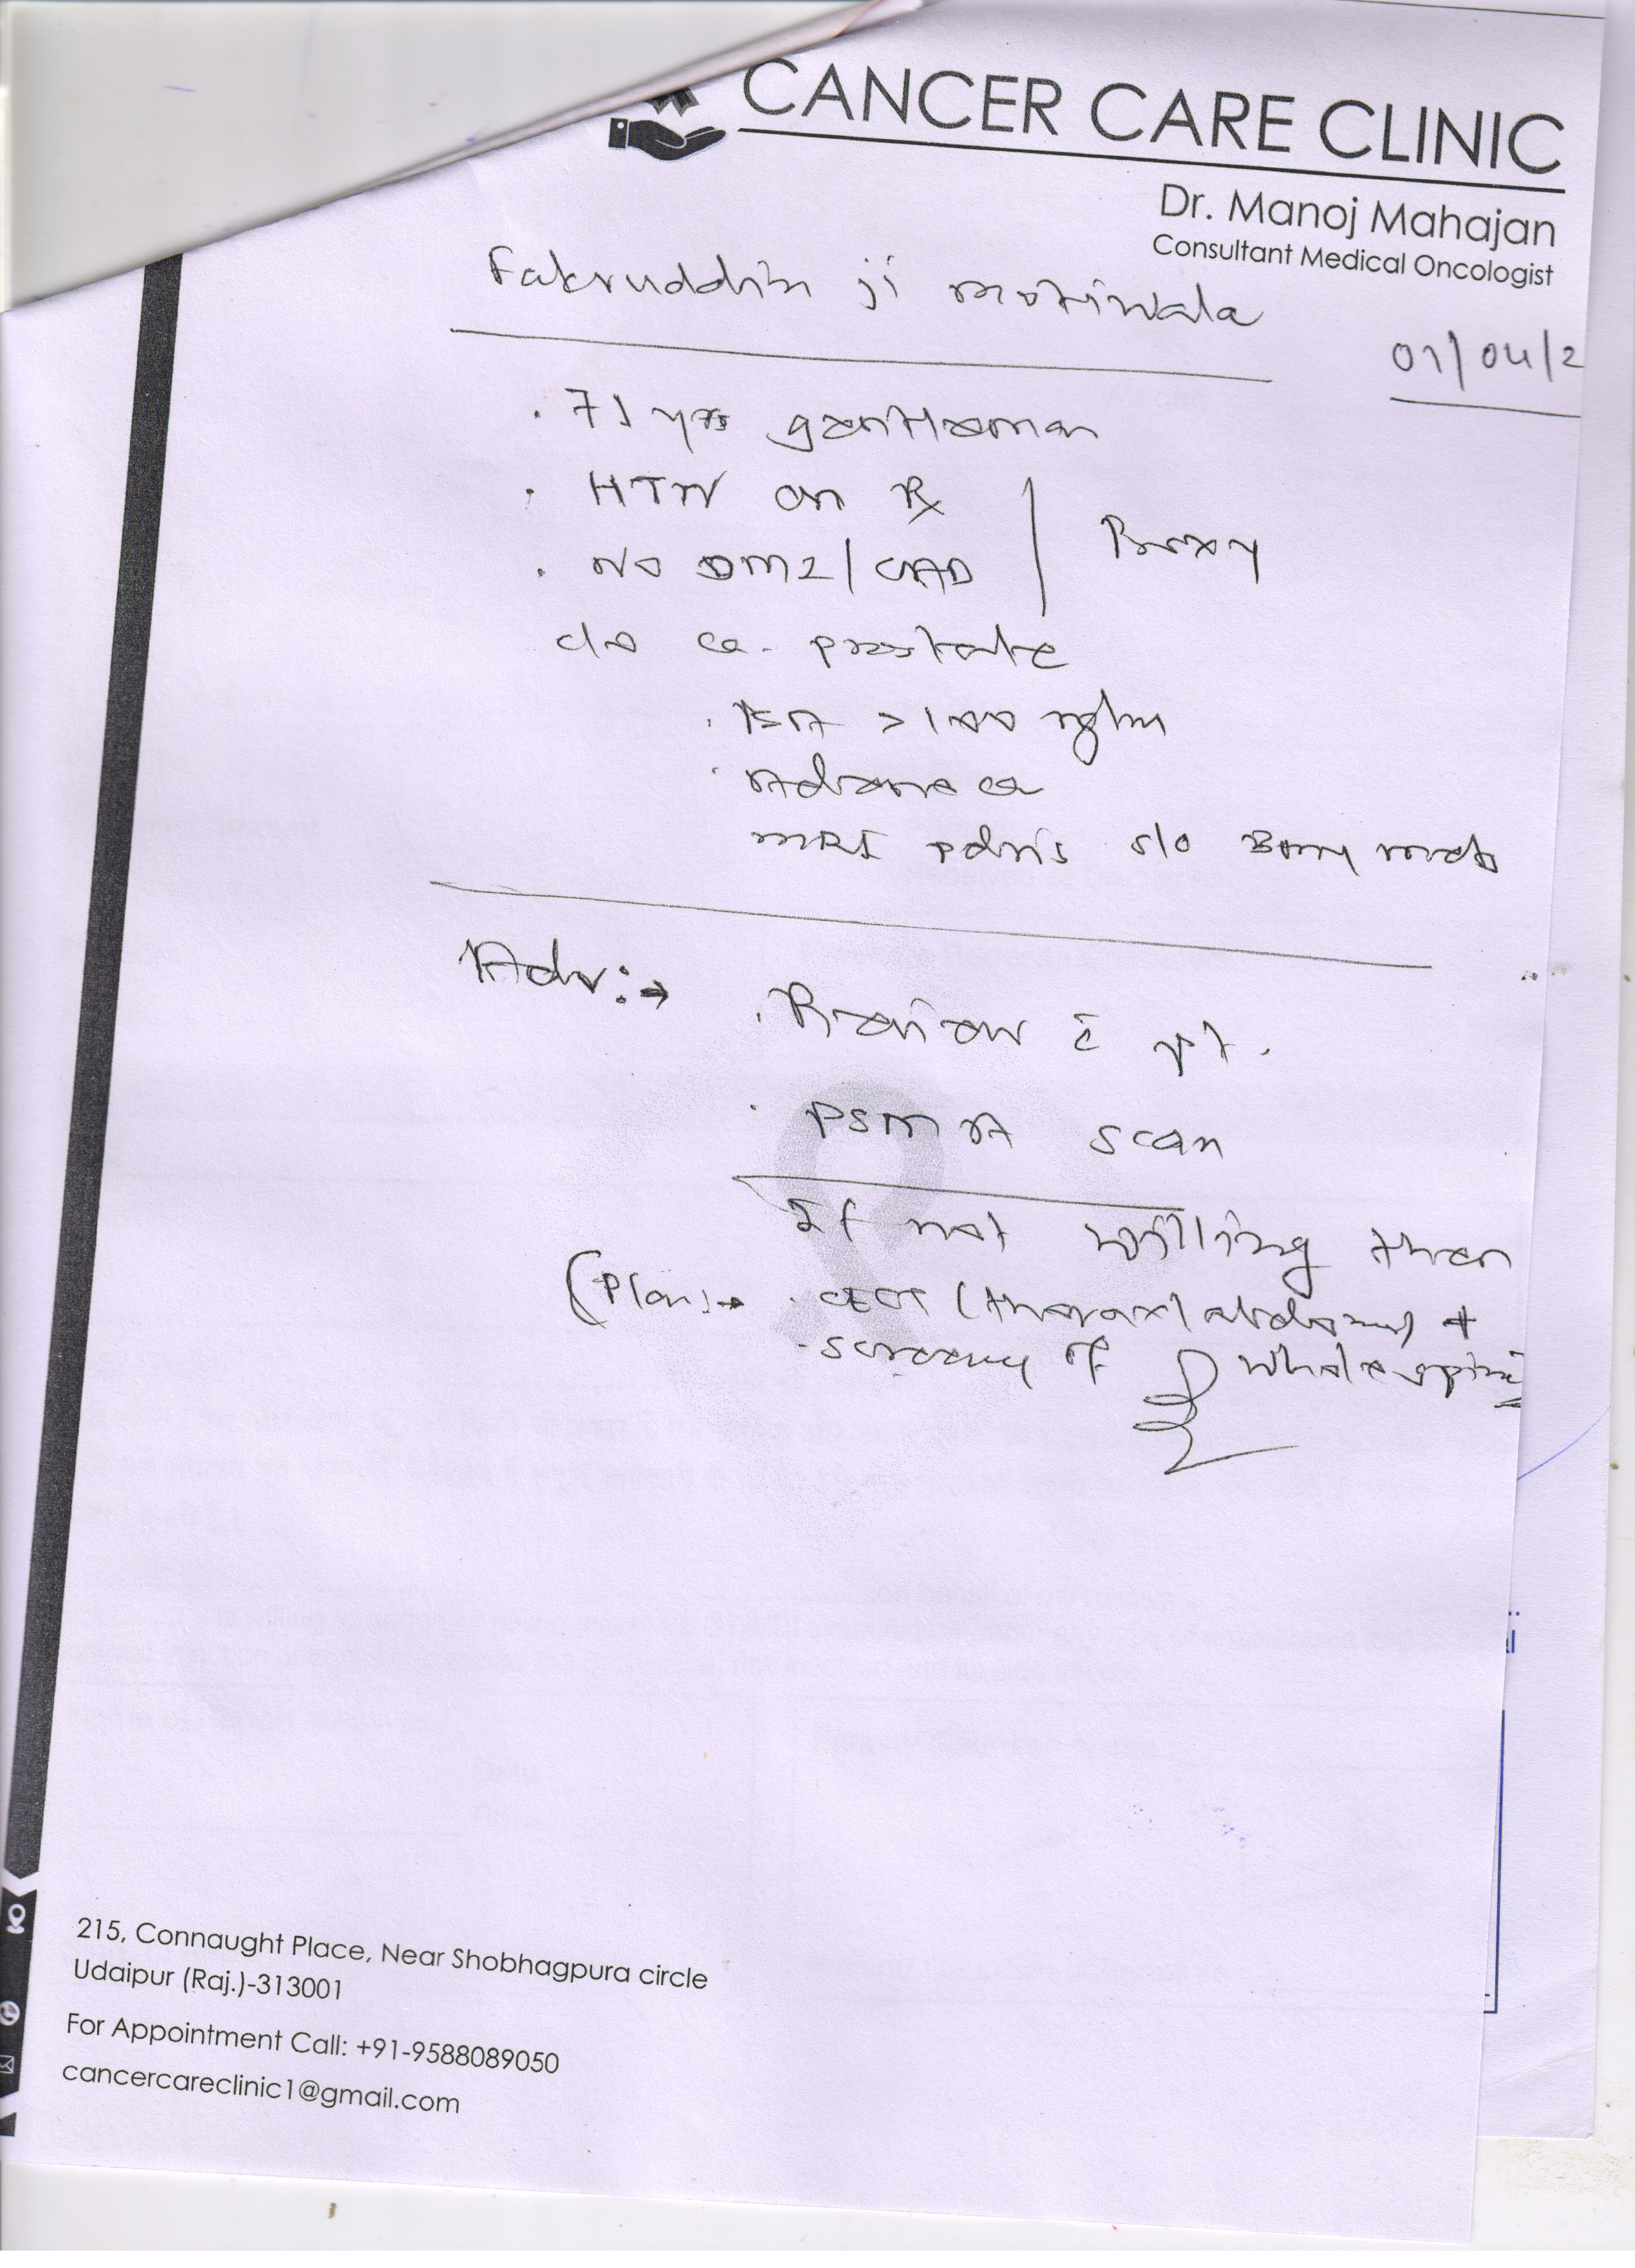 CANCER CARE CLINIC
Dr. Manoj Mahajan
Consultant Medical Oncologist
Fakruddin ji motiwala
01/04/2
. 71 yrs gentleman
. HTN on Rx
. No DM2/CAD
Proxy
c/o ca. prostate
. PSA >100 ng/ml
. Advance ca
MRI pelvis s/o Bony mets
Adv:→ . Review c̄ pt.
. PSMA scan
If not willing then
(Plan:→ . CECT (thorax/abdomen) +
. screening of whole spine
215, Connaught Place, Near Shobhagpura circle
Udaipur (Raj.)-313001
For Appointment Call: +91-9588089050
cancercareclinic1@gmail.com